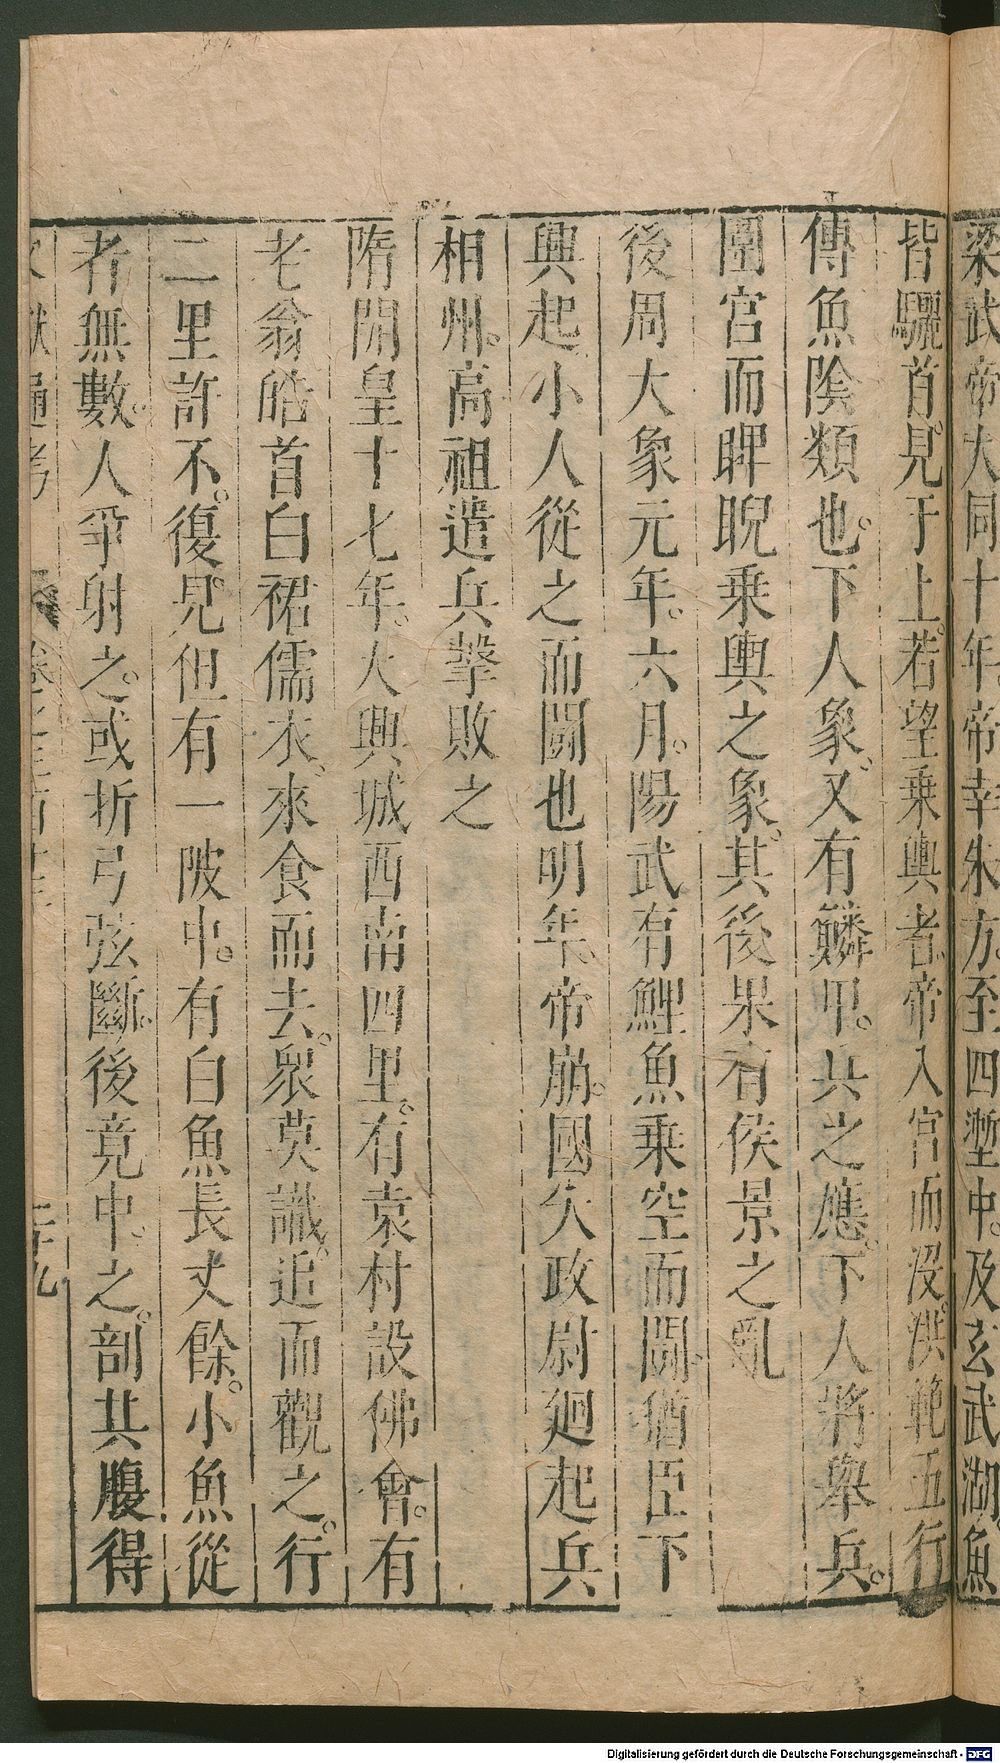 梁武帝大同十年。帝幸朱方。至四塹中。及玄武湖。魚
皆驪首見于上。若望乗輿者。帝入宮而沒。洪範五行
傳魚陰類也。下人象。又有鱗甲。兵之應。下人將舉兵。
圍宮而睥睨乗輿之象。其後果有侯景之亂
後周大象元年。六月。陽武有鯉魚乗空而鬪。猶臣下
興起小人從之而鬪也明年。帝崩。國失政尉迥起兵
相州。高祖遣兵擊敗之
隋開皇十七年。大興城西南四里。有袁村設佛會。有
老翁皓首白裙襦衣。來食而去。衆莫識。追而觀之。行
二里許不。復見。但有一陂中。有白魚長丈餘。小魚從
者無數。人爭射之。或折弓弦斷。後竟中。之。剖其腹得
文獻通考 卷之三百十三 二十九
Digitalisierung gefördert durch die Deutsche Forschungsgemeinschaft - DFG